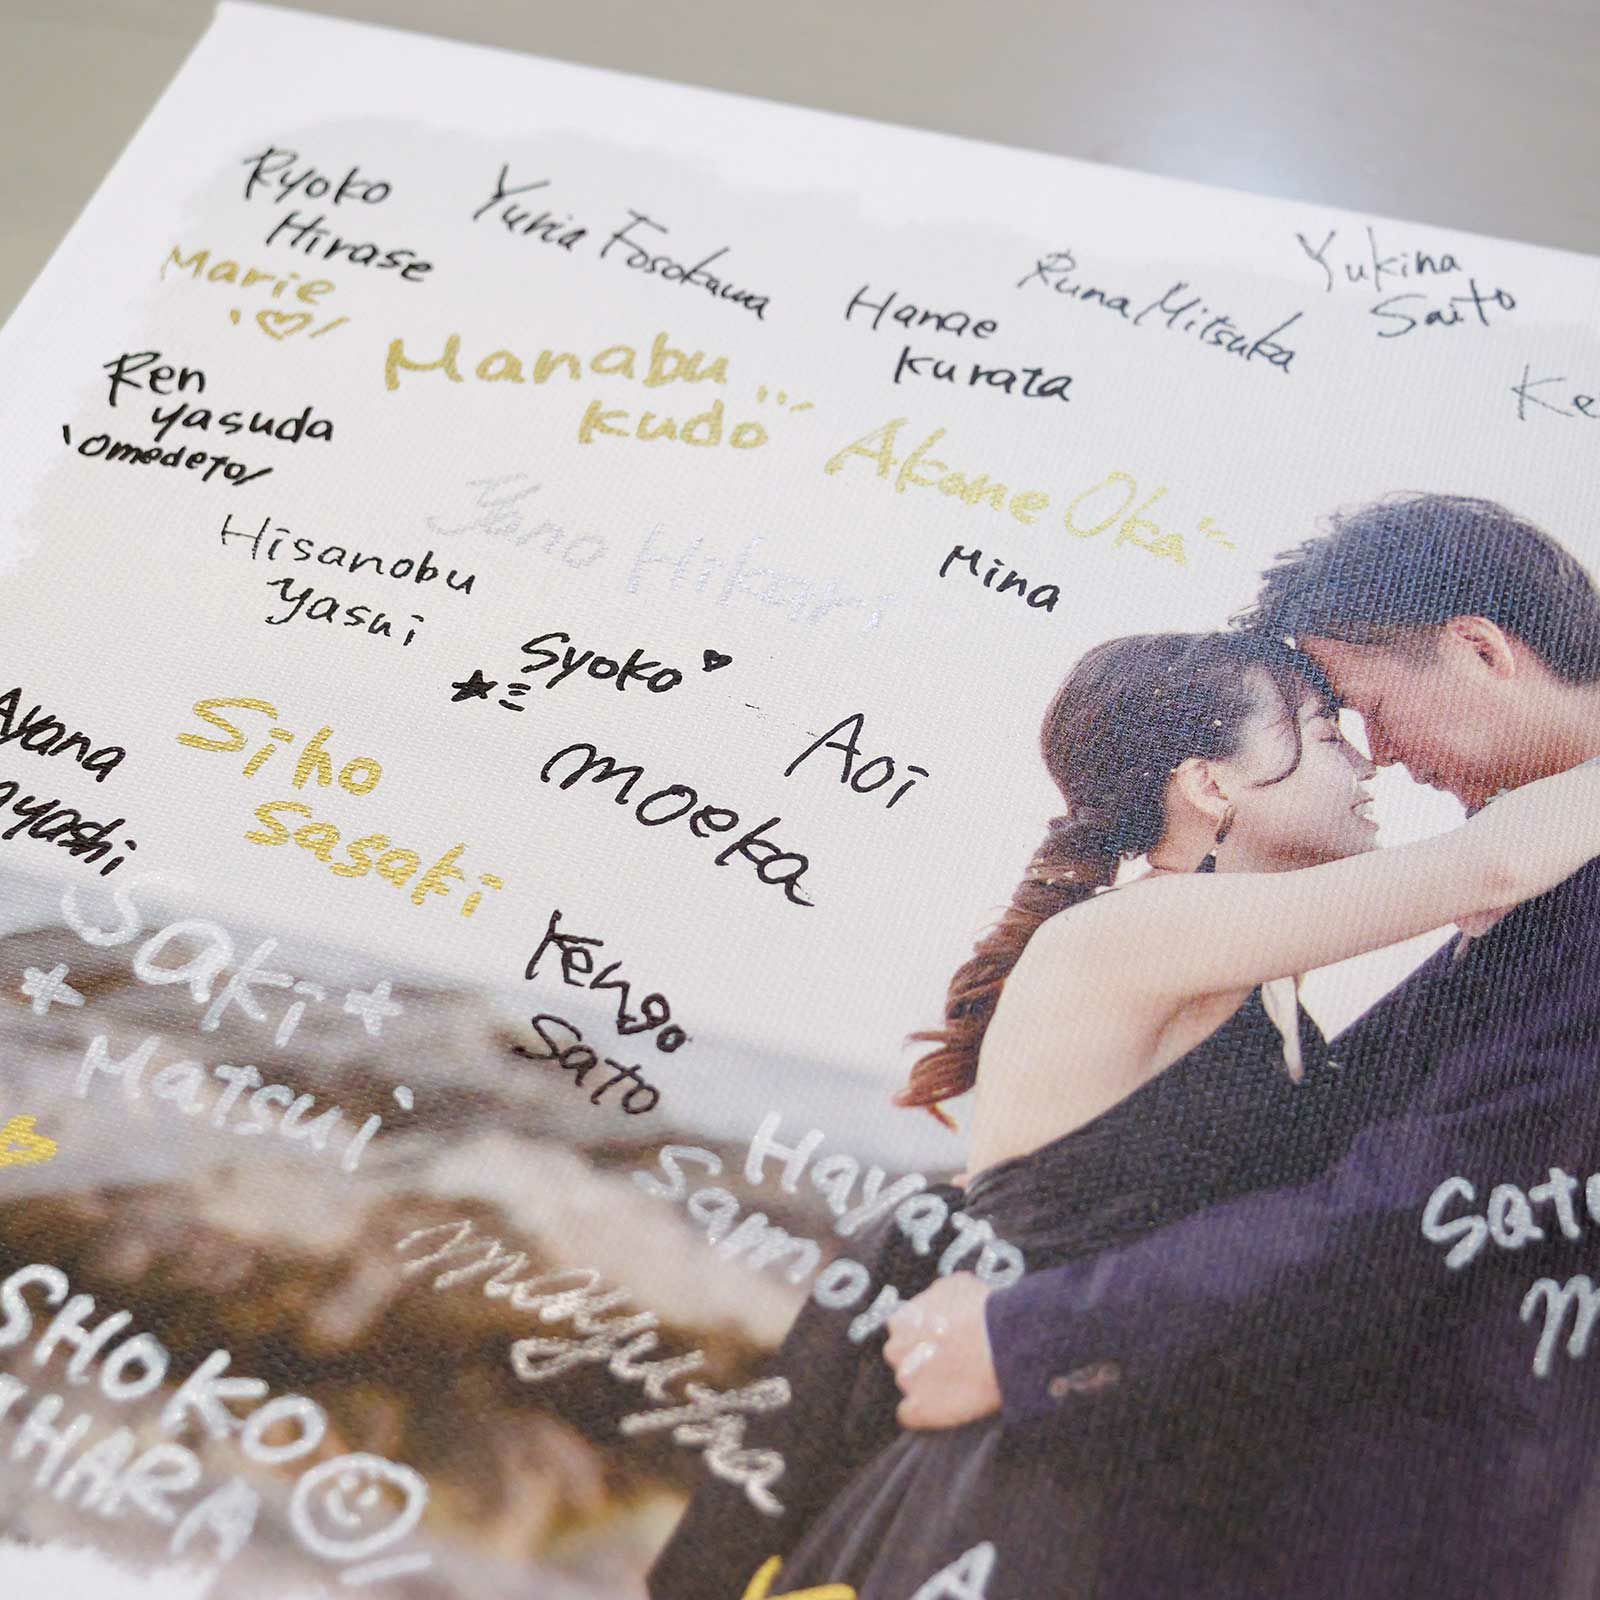 Ryoko
Hirase
Yuria Fosokawa
Yukina
Saito
Runa Mitsuka
Hanae
Kurata
Marie
Manabu
Kudo
Ren
yasuda
\omedeto/
Akane Oka
Yano Hikari
Mina
Hisanobu
yasui
Syoko
Aoi
moeka
Ayana
Siho
Sasaki
Kengo
Sato
Saki
Matsui
Hayato
Samori
SHOKO